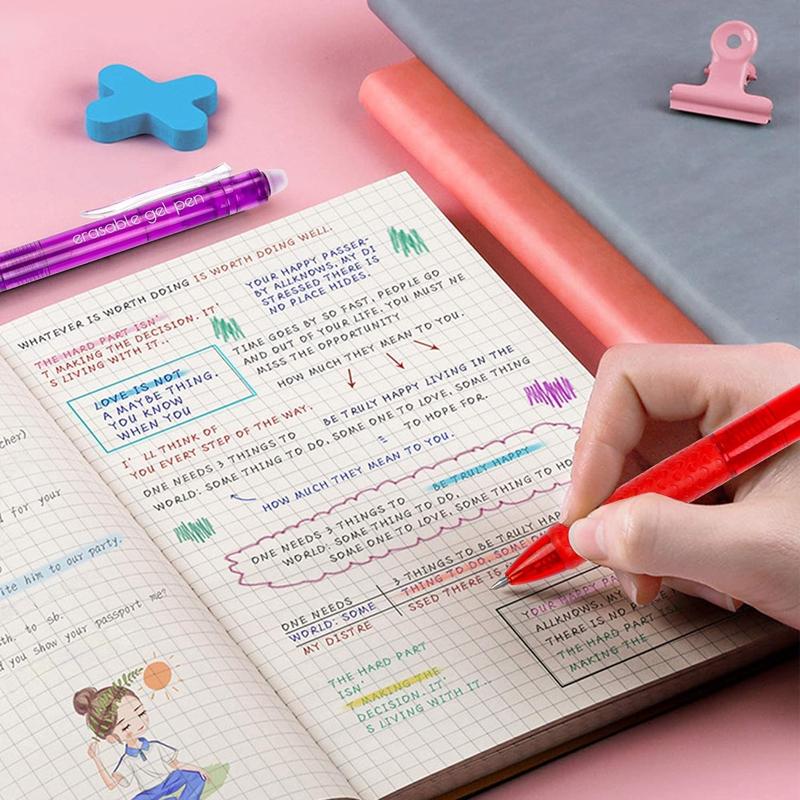 erasable gel pen
WHATEVER IS WORTH DOING IS WORTH DOING WELL.
THE HARD PART ISN'
T MAKING THE DECISION. IT'
S LIVING WITH IT..
YOUR HAPPY PASSER-
BY ALLKNOWS, MY DI
STRESSED THERE IS
NO PLACE HIDES.
LOVE IS NOT
A MAYBE THING.
YOU KNOW
WHEN YOU
TIME GOES BY SO FAST, PEOPLE GO
AND OUT OF YOUR LIFE. YOU MUST NE
MISS THE OPPORTUNITY
HOW MUCH THEY MEAN TO YOU.
I' LL THINK OF
YOU EVERY STEP OF THE WAY.
BE TRULY HAPPY LIVING IN THE
ONE NEEDS 3 THINGS TO
WORLD: SOME THING TO DO, SOME ONE TO LOVE, SOME THING
TO HOPE FOR.
HOW MUCH THEY MEAN TO YOU.
BE TRULY HAPPY
ONE NEEDS 3 THINGS TO
WORLD: SOME THING TO DO,
SOME ONE TO LOVE, SOME THING TO HO
ONE NEEDS
3 THINGS TO BE TRULY HAP
WORLD: SOME
THING TO DO, SOME ON
MY DISTRE
SSED THERE IS
YOUR HAPPY PA
ALLKNOWS, MY
THERE IS NO PLACE
THE HARD PART ISN'
MAKING THE
THE HARD PART
ISN'
T MAKING THE
DECISION. IT'
S LIVING WITH IT...
cher)
d for your
ite him to our party.
th. to sb.
d you show your passport me?